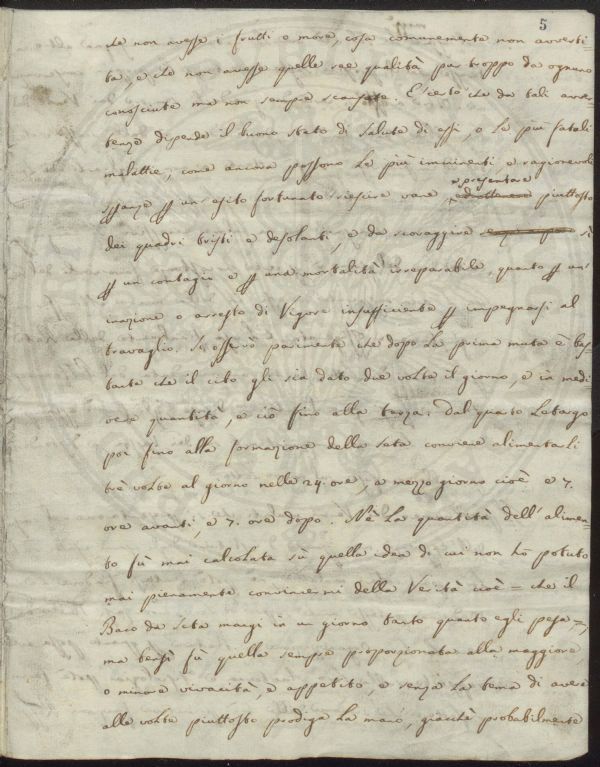 5
che non avesse i frutti o more, cosa comunemente non avverti-
ta, e che non avesse quelle ree qualità pur troppo da ognuno
conosciute ma non sempre scansate. È certo che da tali avver-
tenze dipende il buono stato di salute di essi, o le più fatali
malattie; come ancora possono le più imminenti e ragionevoli
un esito fortunato riescire vane, e presentare piuttosto
dei quadri tristi e desolanti, e da scoraggire sì
un contagio e una mortalità irreparabile, quanto un'i-
nazione o arresto di Vigore insufficiente impegnarsi al
travaglio. Si osservò parimente che dopo la prima muta è bas-
tante che il cibo gli sia dato due volte il giorno, e in medi
ocre quantità, e ciò fino alla terza: dal quarto Letargo
poi fino alla formazione della seta conviene alimentarli
trè volte al giorno nelle 24. ore, a mezzo giorno cioè e 7.
ore avanti, e 7. ore dopo. Nè la quantità dell'alimen-
to fù mai calcolata sù quella idea di cui non hò potuto
mai pienamente convincermi della Verità cioè = che il
Baco da seta mangi in un giorno tanto quanto egli pesa =,
ma bensì fù quella sempre proporzionata alla maggiore
o minore vivacità, e appetito, e senza la tema di avere
alle volte piuttosto prodiga la mano, giacchè probabilmente